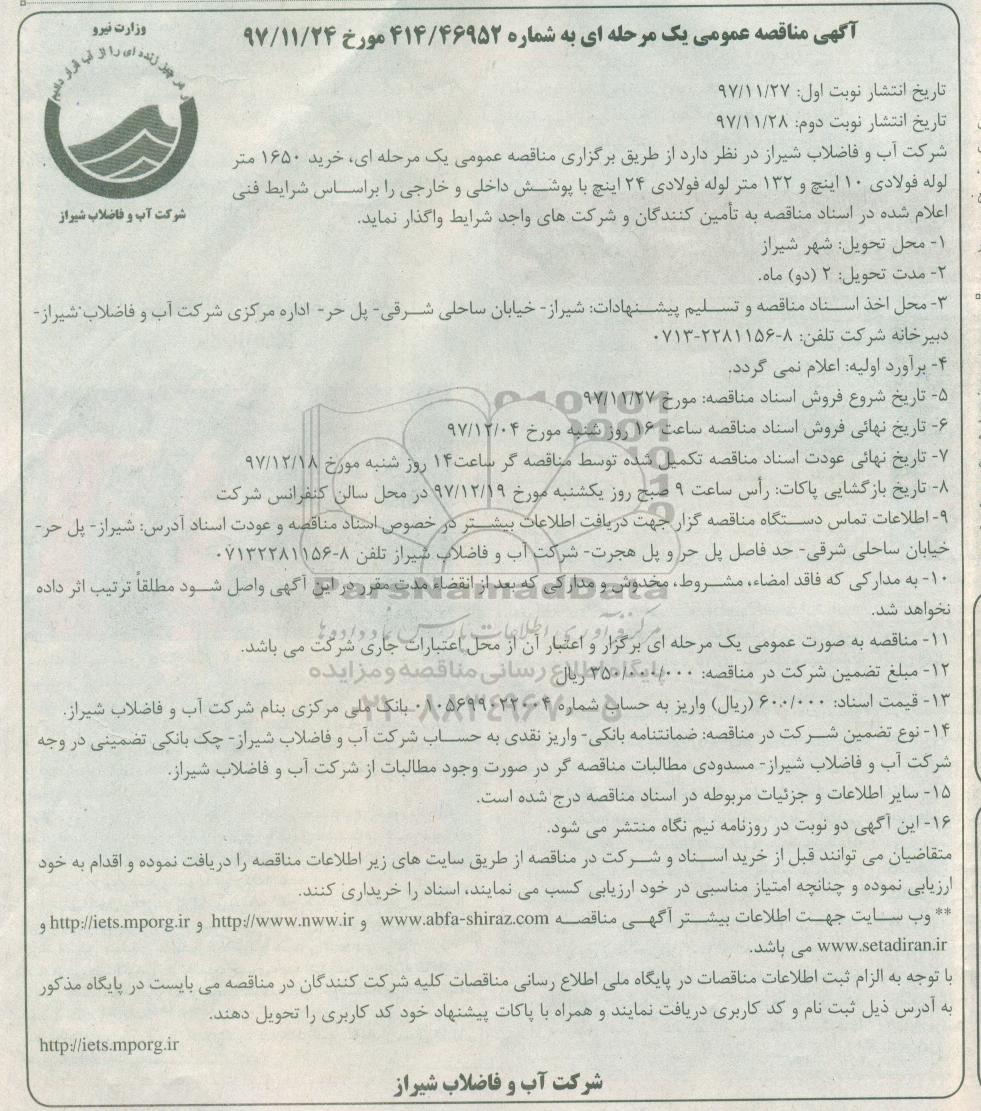 وزارت نیرو
و هر چیز زنده ای را از آب قرار دادیم
شرکت آب و فاضلاب شیراز
آگهی مناقصه عمومی یک مرحله ای به شماره ۴۱۴/۴۶۹۵۲ مورخ ۹۷/۱۱/۲۴
تاریخ انتشار نوبت اول: ۹۷/۱۱/۲۷
تاریخ انتشار نوبت دوم: ۹۷/۱۱/۲۸
شرکت آب و فاضلاب شیراز در نظر دارد از طریق برگزاری مناقصه عمومی یک مرحله ای، خرید ۱۶۵۰ متر
لوله فولادی ۱۰ اینچ و ۱۳۲ متر لوله فولادی ۲۴ اینچ با پوشش داخلی و خارجی را براساس شرایط فنی
اعلام شده در اسناد مناقصه به تأمین کنندگان و شرکت های واجد شرایط واگذار نماید.
۱- محل تحویل: شهر شیراز
۲- مدت تحویل: ۲ (دو) ماه.
۳- محل اخذ اسناد مناقصه و تسلیم پیشنهادات: شیراز- خیابان ساحلی شرقی- پل حر- اداره مرکزی شرکت آب و فاضلاب شیراز-
دبیرخانه شرکت تلفن: ۸-۲۲۸۱۱۵۶-۰۷۱۳
۴- برآورد اولیه: اعلام نمی گردد.
۵- تاریخ شروع فروش اسناد مناقصه: مورخ ۹۷/۱۱/۲۷
۶- تاریخ نهائی فروش اسناد مناقصه ساعت ۱۶ روز شنبه مورخ ۹۷/۱۲/۰۴
۷- تاریخ نهائی عودت اسناد مناقصه تکمیل شده توسط مناقصه گر ساعت۱۴ روز شنبه مورخ ۹۷/۱۲/۱۸
۸- تاریخ بازگشایی پاکات: رأس ساعت ۹ صبح روز یکشنبه مورخ ۹۷/۱۲/۱۹ در محل سالن کنفرانس شرکت
۹- اطلاعات تماس دستگاه مناقصه گزار جهت دریافت اطلاعات بیشتر در خصوص اسناد مناقصه و عودت اسناد آدرس: شیراز- پل حر-
خیابان ساحلی شرقی- حد فاصل پل حر و پل هجرت- شرکت آب و فاضلاب شیراز تلفن ۸-۰۷۱۳۲۲۸۱۱۵۶
۱۰- به مدارکی که فاقد امضاء، مشروط، مخدوش و مدارکی که بعد از انقضاء مدت مقرر در این آگهی واصل شود مطلقاً ترتیب اثر داده
نخواهد شد.
۱۱- مناقصه به صورت عمومی یک مرحله ای برگزار و اعتبار آن از محل اعتبارات جاری شرکت می باشد.
۱۲- مبلغ تضمین شرکت در مناقصه: ۳۵۰/۰۰۰/۰۰۰ ریال
۱۳- قیمت اسناد: ۶۰۰/۰۰۰ (ریال) واریز به حساب شماره ۰۱۰۵۶۹۹۰۲۲۰۰۴ بانک ملی مرکزی بنام شرکت آب و فاضلاب شیراز.
۱۴- نوع تضمین شرکت در مناقصه: ضمانتنامه بانکی- واریز نقدی به حساب شرکت آب و فاضلاب شیراز- چک بانکی تضمینی در وجه
شرکت آب و فاضلاب شیراز- مسدودی مطالبات مناقصه گر در صورت وجود مطالبات از شرکت آب و فاضلاب شیراز.
۱۵- سایر اطلاعات و جزئیات مربوطه در اسناد مناقصه درج شده است.
۱۶- این آگهی دو نوبت در روزنامه نیم نگاه منتشر می شود.
متقاضیان می توانند قبل از خرید اسناد و شرکت در مناقصه از طریق سایت های زیر اطلاعات مناقصه را دریافت نموده و اقدام به خود
ارزیابی نموده و چنانچه امتیاز مناسبی در خود ارزیابی کسب می نمایند، اسناد را خریداری کنند.
** وب سایت جهت اطلاعات بیشتر آگهی مناقصه www.abfa-shiraz.com و http://www.nww.ir و http://iets.mporg.ir و
www.setadiran.ir می باشد.
با توجه به الزام ثبت اطلاعات مناقصات در پایگاه ملی اطلاع رسانی مناقصات کلیه شرکت کنندگان در مناقصه می بایست در پایگاه مذکور
به آدرس ذیل ثبت نام و کد کاربری دریافت نمایند و همراه با پاکات پیشنهاد خود کد کاربری را تحویل دهند.
http://iets.mporg.ir
شرکت آب و فاضلاب شیراز
ParsNamadData
پایگاه اطلاع رسانی مناقصه و مزایده
۰۲۱-۸۸۳۴۹۶۷۰-۵